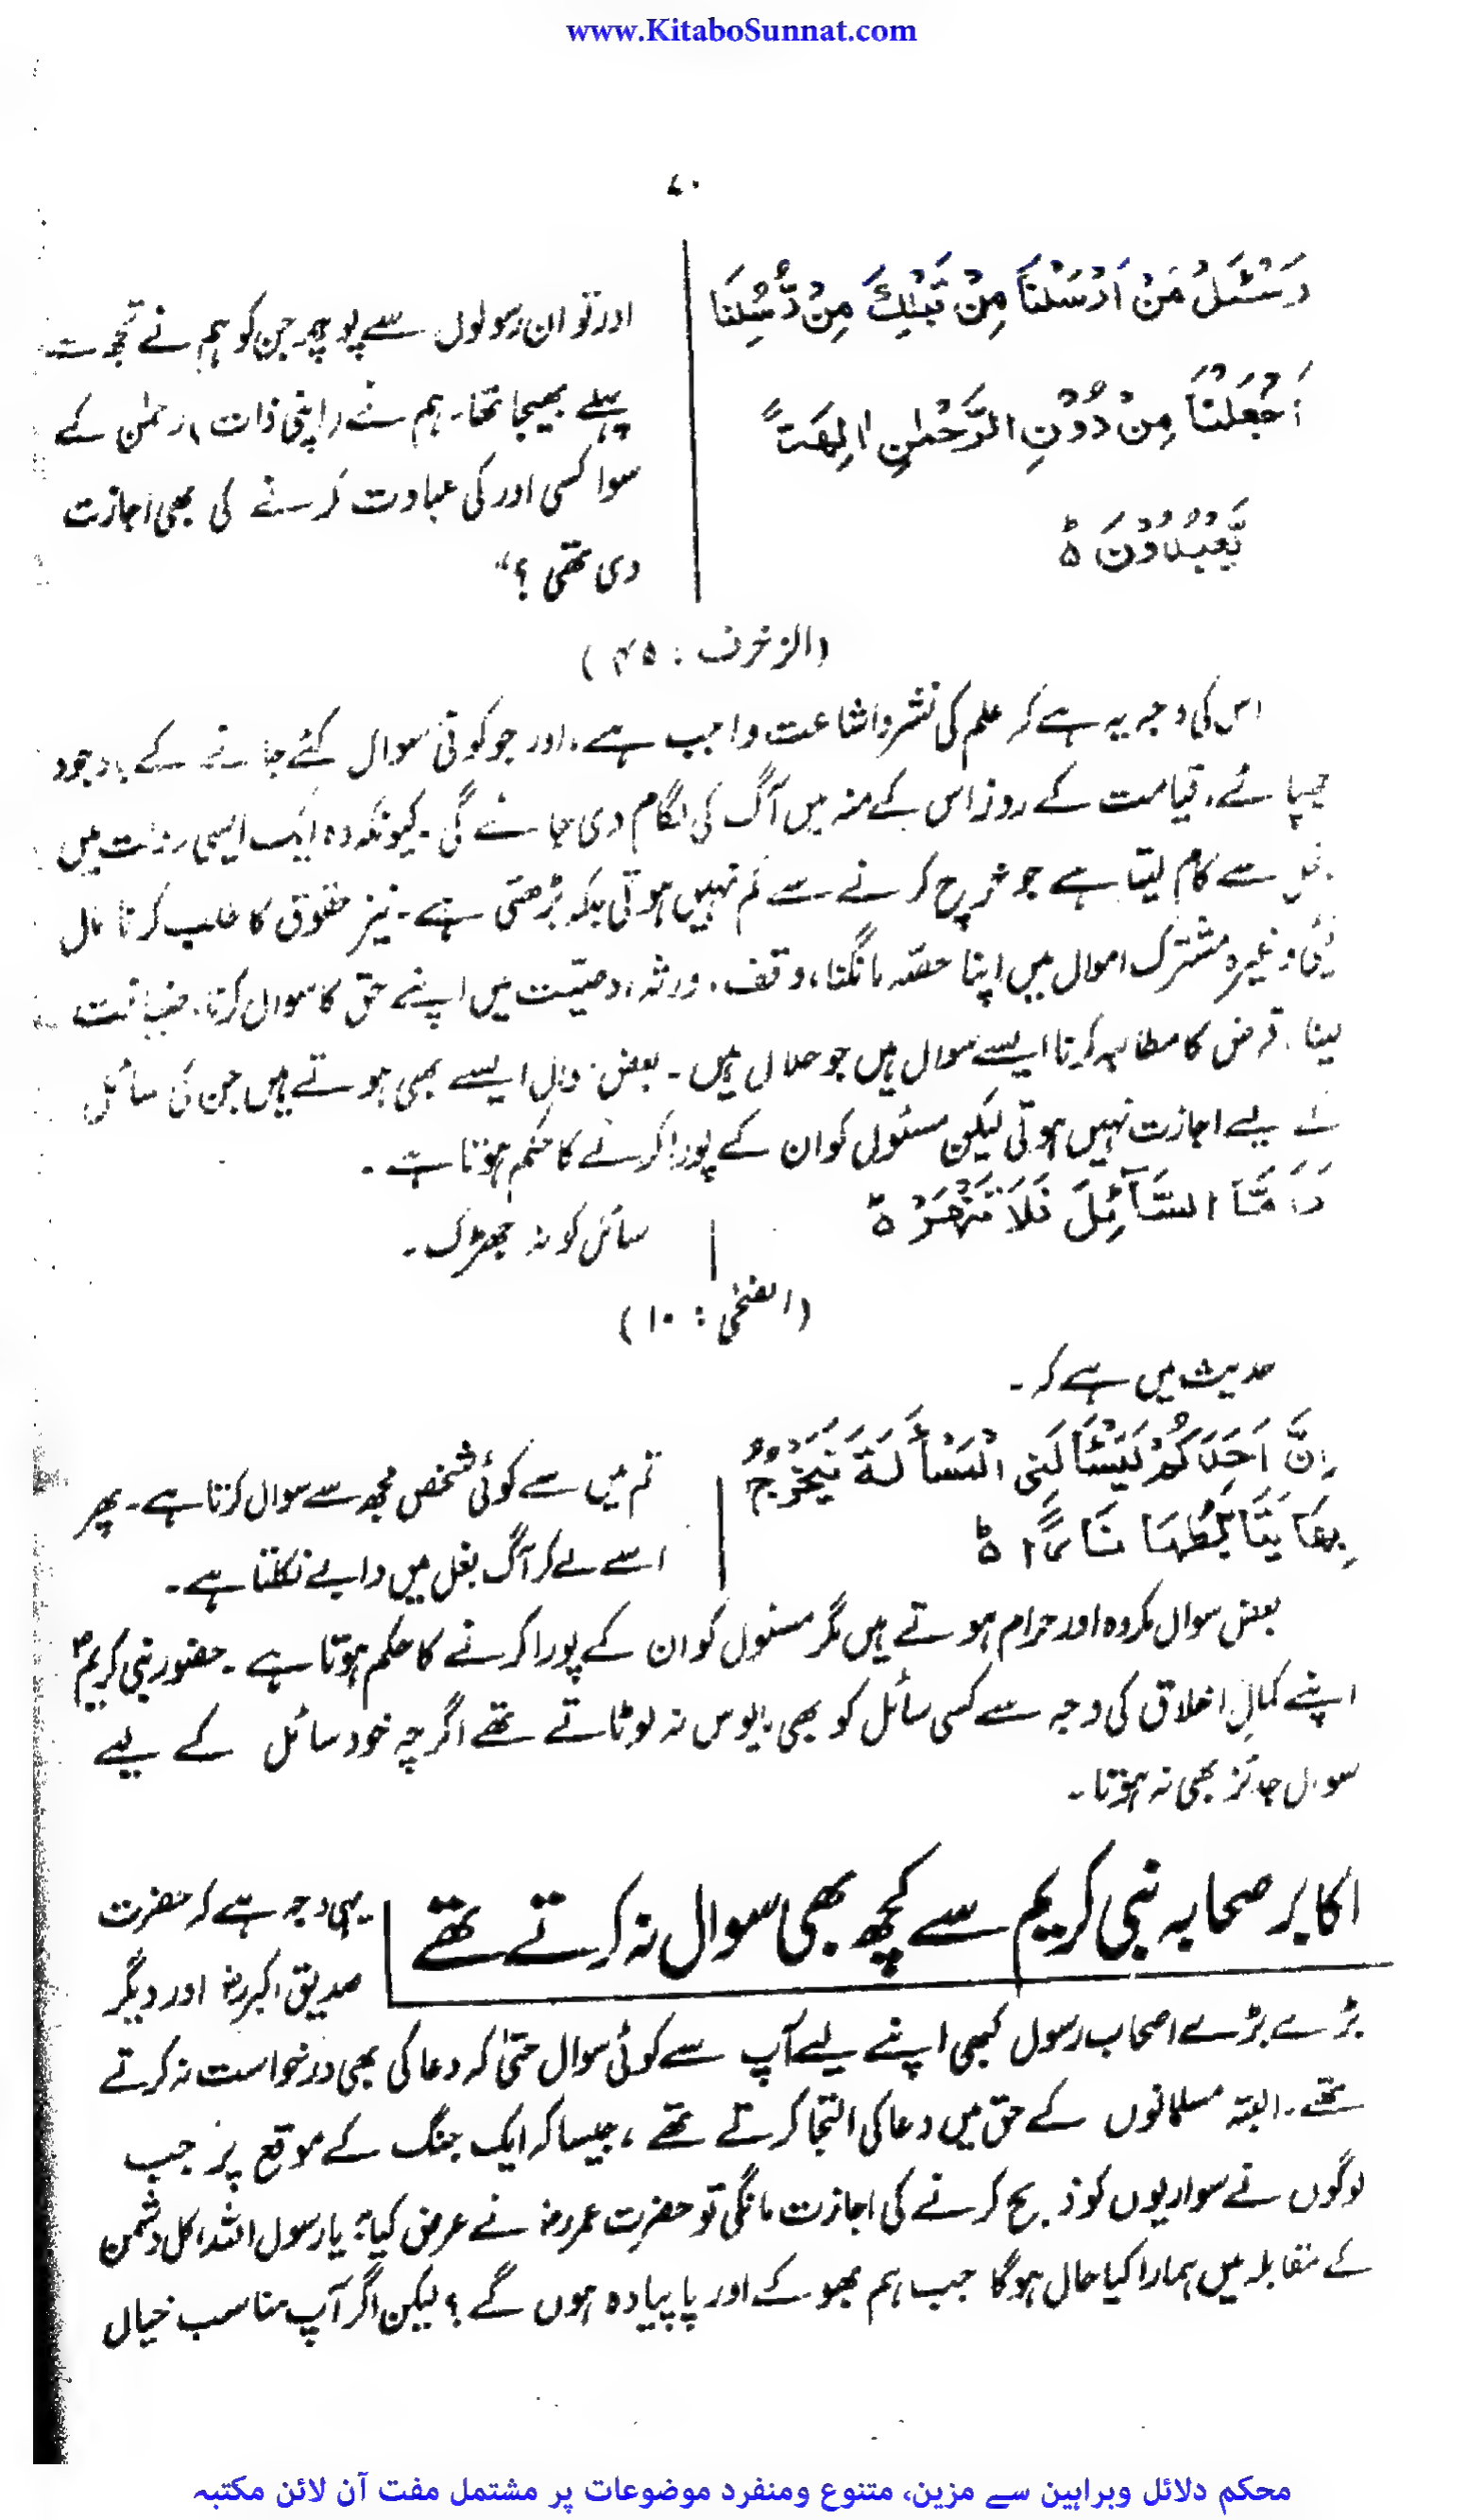 www.KitaboSunnat.com
۷۰
وَسْئَلْ مَنْ اَرْسَلْنَا مِنْ قَبْلِكَ مِنْ رُّسُلِنَا
اَجَعَلْنَا مِنْ دُوْنِ الرَّحْمٰنِ اٰلِهَةً
يُّعْبَدُوْنَ ہ
اور تو ان رسولوں سے پوچھ جن کو ہم نے تجھ سے
پہلے بھیجا تھا۔ ہم نے (اپنی ذات) رحمٰن کے
سوا کسی اور کی عبادت کرنے کی بھی اجازت
دی تھی؟“
(الزخرف : ۴۵)
اس کی وجہ یہ ہے کہ علم کی نشر و اشاعت واجب ہے، اور جو کوئی سوال کئے جانے کے باوجود
چھپائے، قیامت کے روز اس کے منہ میں آگ کی لگام دی جائے گی۔ کیونکہ وہ ایک ایسی میں
بخل سے کام لیتا ہے جو خرچ کرنے سے کم نہیں ہوتی بلکہ بڑھتی ہے۔ نیز حقوق کا طلب کرنا مال
فئی وغیرہ مشترک اموال میں اپنا حصّہ مانگنا، وقف، ورثہ، وصیّت میں اپنے حق کا سوال کرنا، ضیافت
لینا، قرض کا مطالبہ کرنا ایسے سوال ہیں جو حلال ہیں۔ بعض سوال ایسے بھی ہوتے ہیں جن کی سائل
کے لیے اجازت نہیں ہوتی لیکن مسئول کو ان کے پورا کرنے کا حکم ہوتا ہے۔
وَاَمَّا السَّآئِلَ فَلَا تَنْهَرْ ہ
سائل کو نہ جھڑک۔
(الضحٰی : ۱۰)
حدیث میں ہے کہ۔
اِنَّ اَحَدَكُمْ لَيَسْئَالُنِى الْمَسْأَلَةَ فَيَخْرُجُ
بِهَا يَتَأَبَّطُهَا نَارًا ہ
تم میں سے کوئی شخص مجھ سے سوال کرتا ہے۔ پھر
اسے لے کر آگ بغل میں دابے نکلتا ہے۔
بعض سوال مکروہ اور حرام ہوتے ہیں مگر مسئول کو ان کے پورا کرنے کا حکم ہوتا ہے۔ حضور نبی کریمؐ
اپنے کمالِ اخلاق کی وجہ سے کسی سائل کو بھی مایوس نہ لوٹاتے تھے اگرچہ خود سائل کے لیے
سوال جائز بھی نہ ہوتا۔
اکابر صحابہ نبی کریم سے کچھ بھی سوال نہ کرتے تھے
یہی وجہ ہے کہ حضرت
صدیق اکبرؓ اور دیگر
بڑے بڑے اصحاب رسول کبھی اپنے لیے آپ سے کوئی سوال حتیٰ کہ دعا کی بھی درخواست نہ کرتے
تھے۔ البتہ مسلمانوں کے حق میں دعا کی التجا کرتے تھے، جیسا کہ ایک جنگ کے موقع پر جب
لوگوں نے سواریوں کو ذبح کرنے کی اجازت مانگی تو حضرت عمرؓ نے عرض کیا: یا رسول اللہ! کل دشمن
کے مقابلہ میں ہمارا کیا حال ہوگا جب ہم بھوکے اور پاپیادہ ہوں گے؟ لیکن اگر آپ مناسب خیال
محکم دلائل وبراہین سے مزین، متنوع ومنفرد موضوعات پر مشتمل مفت آن لائن مکتبہ